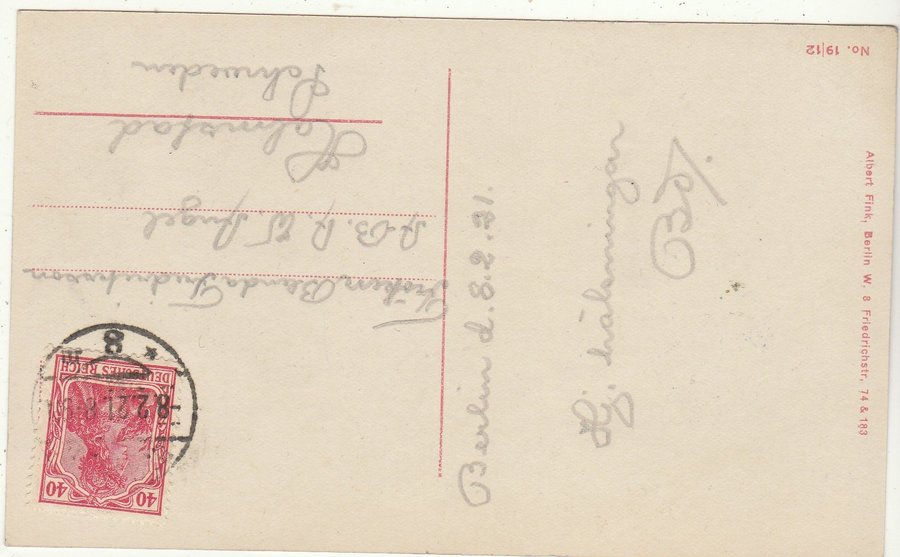 No. 19/12
Albert Fink, Berlin W. 8 Friedrichstr. 74 & 183
Berlin d. 8.2.21.
Hj. hälsningar
40 40
DEUTSCHES REICH
-8.2.21.
8
Fröken Banda
A.B. A. W.
Halmstad
Schweden